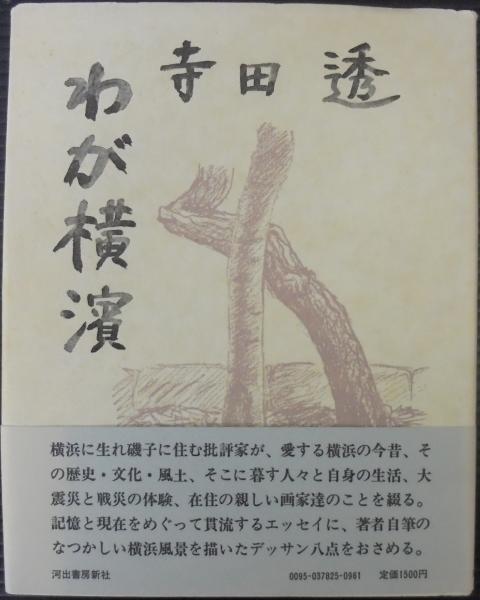 寺田 透
わが横濱
横浜に生れ磯子に住む批評家が、愛する横浜の今昔、そ
の歴史・文化・風土、そこに暮す人々と自身の生活、大
震災と戦災の体験、在住の親しい画家達のことを綴る。
記憶と現在をめぐって貫流するエッセイに、著者自筆の
なつかしい横浜風景を描いたデッサン八点をおさめる。
河出書房新社 0095-037825-0961 定価1500円